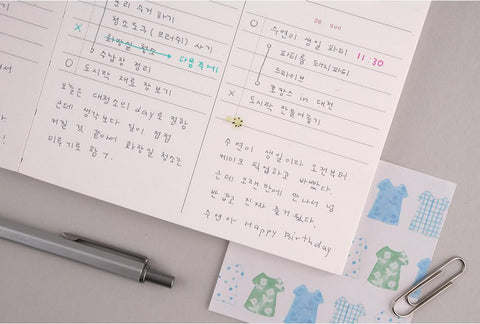 분리 수거 하기
청소도구(브러쉬) 사기
X 화장실 청소 → 다음주에
수납장 정리
O 도시락 재료 장보기
오늘은 대청소의 day로 정함
근데 생각보다 일이 점점
커질 것 같아서 화장실 청소는
미루기로 함 ㅜ.
20 300
O 수연이 생일 파티 11:30
파티룸 돼지파티
드라이브
호캉스 in 대전
X 도시락 만들어놓기
수연이 생일이라 오전부터
케이크 픽업하고 바빴다.
근데 오랜만에 만나서 넘
반갑고 진짜 즐거웠다.
수연아 Happy Birthday